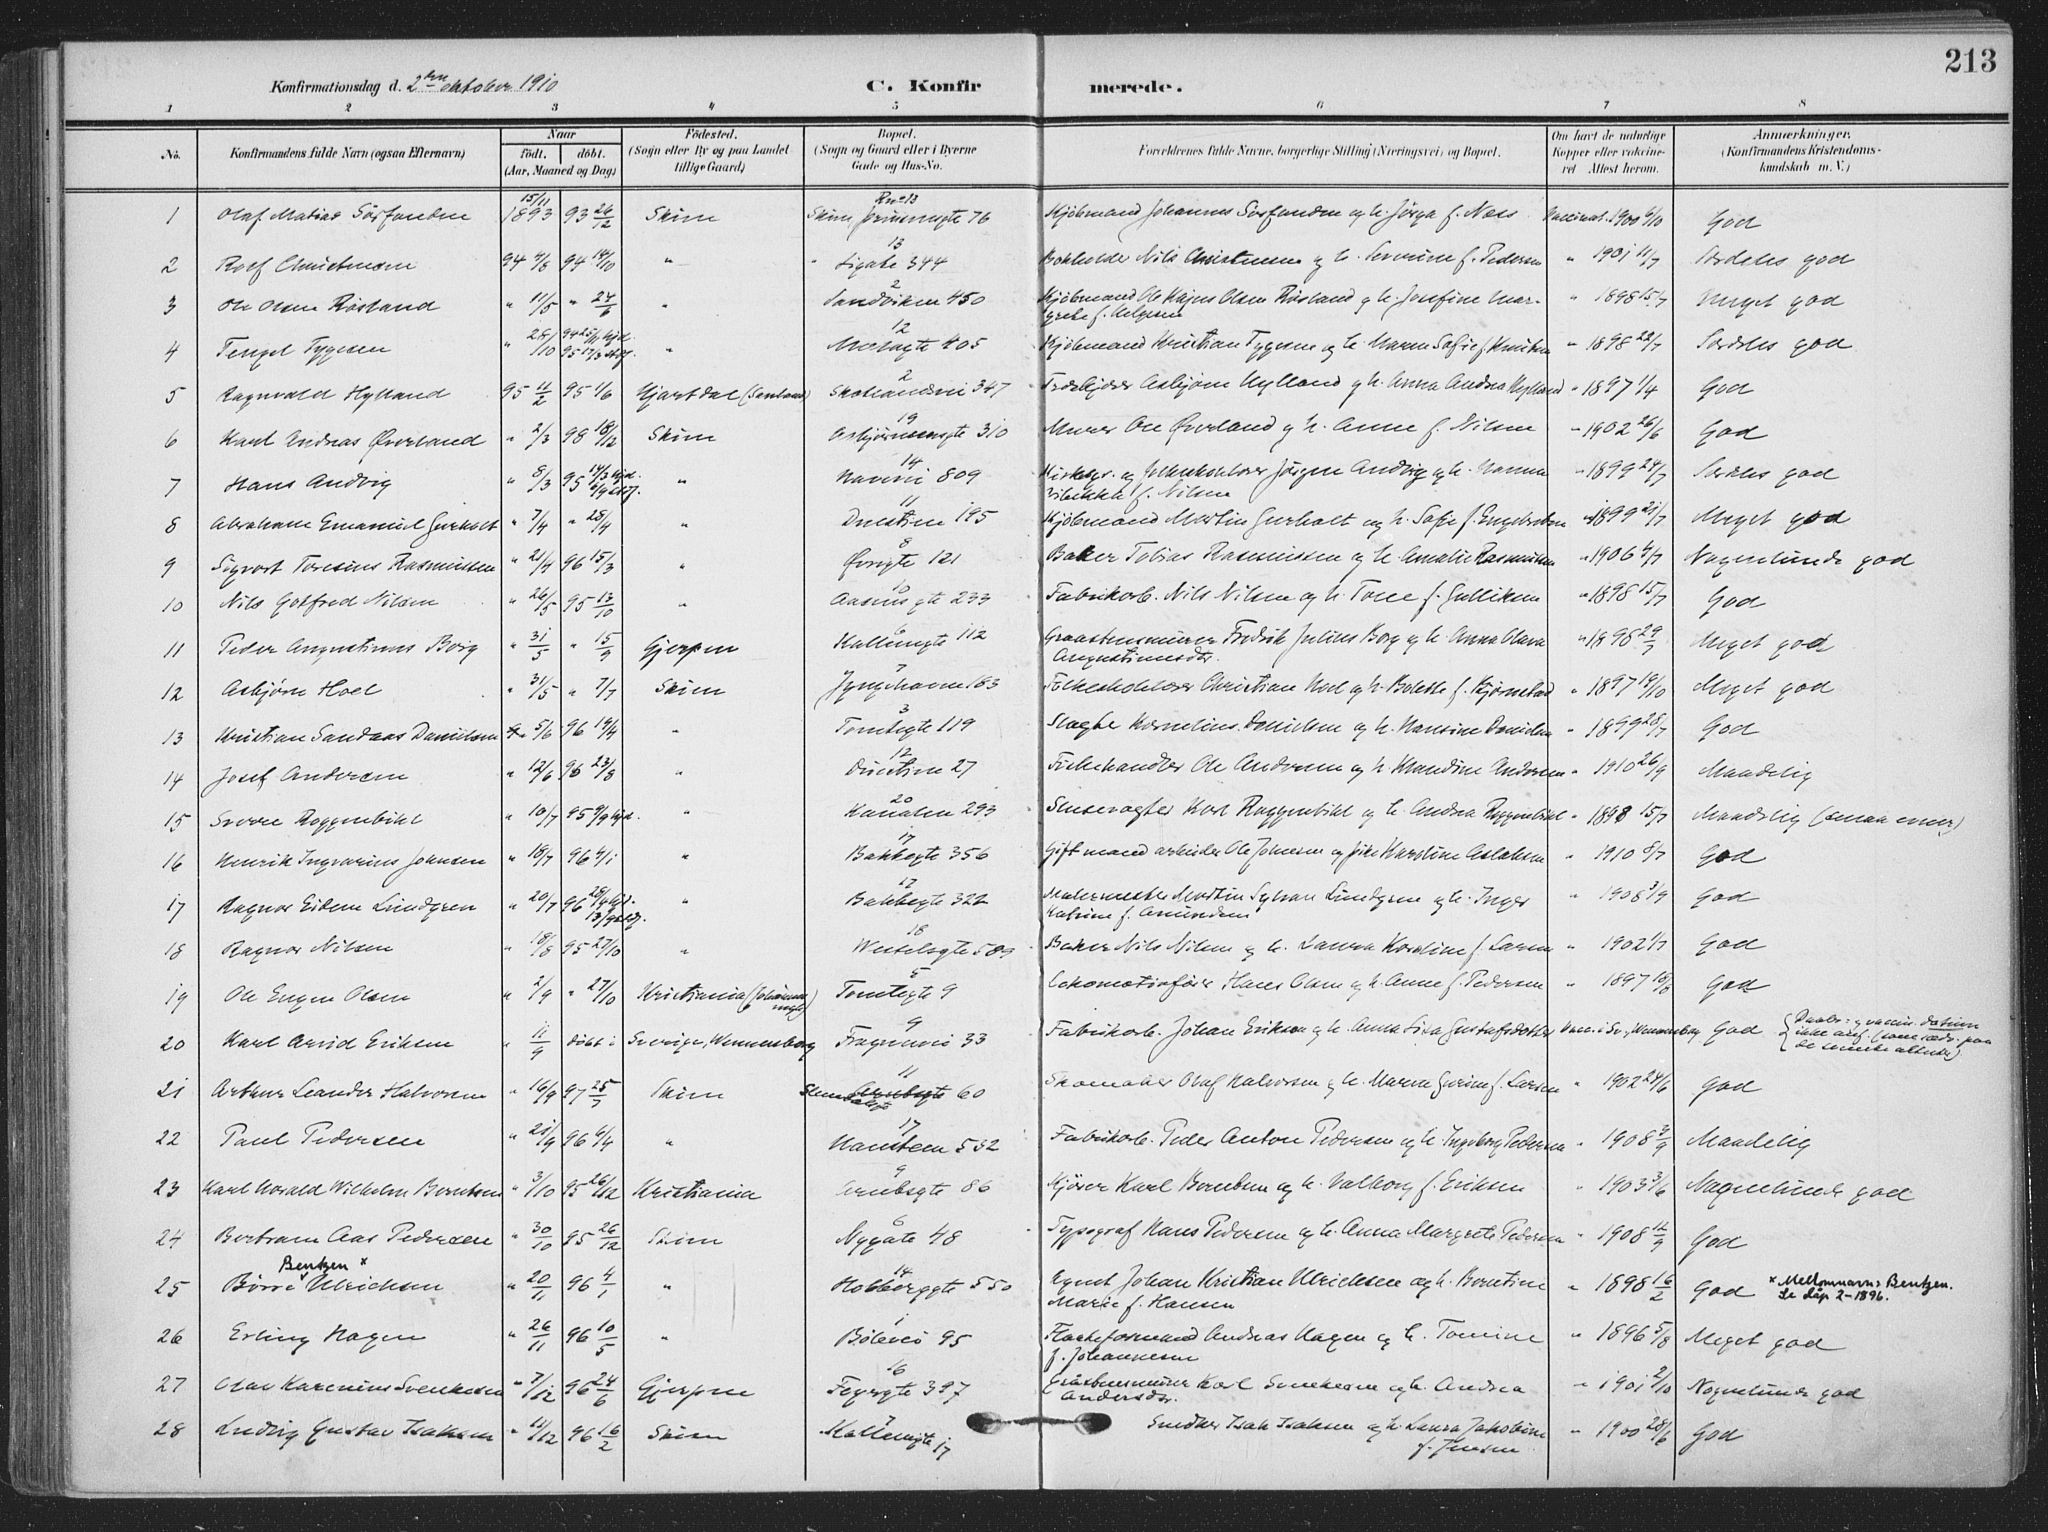 213
Konfirmationsdag d. 2den oktober 1910 C. Konfirmerede.
1 2 3 4 5 6 7 8
No. Konfirmandens fulde Navn (ogsaa Efternavn) Naar født. døbt. (Aar, Maaned og Dag) Fødested. (Sogn eller By og paa Landet tillige Gaard) Bopæl. (Sogn og Gaard eller i Byerne Gade og Hus-No. Forældrenes fulde Navne, borgerlige Stilling (Næringsvei) og Bopæl. Om havt de naturlige Kopper eller vaksineret. Attest herom. Anmærkninger. (Konfirmandens Kristendomskundskab m. V.)
1 Olaf Matias Sørfonden 15/11 1893 93 26/12 Skien Skien, 76 Kjøbmand Johannes Sørfonden og h. f. Næss Vaccinat. 1900 6/10 God
2 Rolf Christensen 94 4/8 94 14/10 " 13 Ligate 344 Bokholder Nils Christensen og h. Severine f. Pedersen " 1901 11/7 Særdeles god
3 Ole Olsen Røsland " 11/5 " 24/6 " 2 Sandviken 450 Kjøbmand Ole Olsen Røsland og h. Josefine Margrete f. Helgesen " 1898 15/7 Meget god
4 Tengel Tygesen " 28/10 94 25/11 hjd. 95 17/3 " 12 405 Kjøbmand Kristian Tygesen og h. Maren Sofie f. Knutsen " 1898 22/7 Særdeles god
5 Ragnvald Hylland 95 11/2 95 1/6 Hjartdal (Sauland) 2 347 Asbjørn Hylland og h. Anna Andrea Hylland " 1897 1/4 God
6 Karl Andreas Øverland " 2/3 98 18/12 Skien 19 Asbjørnsensgte 310 Murer Ole Øverland og h. Anne f. Nilsen " 1902 26/6 God
7 Hans Andvig " 8/3 95 14/3 hjd. " 14 809 Kirkesgr. og Folkeskolelærer Jørgen Andvig og h. Hanna f. Nilsen " 1899 24/7 Særdeles god
8 Abraham Emanuel Gurholt " 7/4 " 28/4 " 11 195 Kjøbmand Martin Gurholt og h. Sofie f. Engebretsen " 1899 21/7 Meget god
9 Sigvart Toresius Rasmussen " 21/4 96 15/3 " 8 Øvregte 121 Baker Tobias Rasmussen og h. Amalie Rasmussen " 1906 4/7 Nogenlunde god
10 Nils Gotfred Nilsen " 26/5 95 13/10 " 10 Aasensgte 233 Fabrikarb. Nils Nilsen og h. Tone f. Gulliksen " 1898 15/7 God
11 Peder Augustinus Borg " 31/5 " 15/9 Gjerpen 6 112 Graastensmurer Fredrik Julius Borg og h. Anna Olava Augustinusdtr. " 1898 29/7 Meget god
12 Asbjørn Hoel " 31/5 " 7/7 Skien 7 183 Folkeskolelærer Christian Hoel og h. Bolette f. Bjørnstad " 1897 19/10 Meget god
13 Kristian Sandaas Danielsen " 5/6 96 19/4 " 3 Tomtegte 119 Slagter Kornelius Danielsen og h. Hansine Danielsen " 1899 28/7 God
14 Josef Andersen " 12/6 96 23/8 " 12 27 Fiskehandler Ole Andersen og h. Klaudine Andersen " 1910 26/9 Maadelig
15 Sverre Roggenbihl " 10/7 95 9/9 hjd. " 20 Kanalen 293 Slusevogter Karl Roggenbihl og h. Andrea Roggenbihl " 1898 15/7 Maadelig (smaa evner)
16 Henrik Ingvarius Johnsen " 18/7 96 4/1 " 17 Bakkegte 356 Gift mand arbeider Ole Johnsen og pike Karoline Aslaksen " 1910 8/7 God
17 Ragnar Eidem Lundgren " 20/7 96 28/4 " 17 Bakkegte 322 Malermester Martin Sylvan Lundgren og h. Inger Katrine f. Amundsen " 1908 3/9 God
18 Ragnar Nilsen " 18/8 95 27/10 " 18 Wesselsgte 589 Baker Nils Nilsen og h. Laura Karoline f. Larsen " 1902 1/7 God
19 Ole Eugen Olsen " 2/9 " 27/10 Kristiania 5 Tomtegte 9 Lokomotivfører Hans Olsen og h. Anne f. Pedersen " 1897 18/8 God
20 Karl Arvid Eriksen " 11/9 døbt i Sverige, Wennersborg 9 33 Fabrikarb. Johan Eriksen og h. Anna Lisa Gustafsdotter Vacc. i Sv., Wennersborg God Daabs- og vaccin. datum ikke
21 Arthur Leander Halvorsen " 16/9 97 25/7 Skien 11 60 Skomaker Olaf Halvorsen og h. Maren f. Larsen " 1902 24/6 God
22 Paul Pedersen " 21/9 96 6/4 " 17 Hansteen 532 Fabrikarb. Peder Anton Pedersen og h. Ingeborg Pedersen " 1908 3/9 Maadelig
23 Karl Harald Wilhelm Berntsen " 3/10 95 26/12 Kristiania 9 Arnebsgte 86 Kjører Karl Berntsen og h. Valborg f. Eriksen " 1903 3/6 Nogenlunde god
24 Bertram Aas Pedersen " 30/10 95 26/12 Skien 6 Nygate 48 Typograf Hans Pedersen og h. Anna Margrete Pedersen " 1908 12/9 God
Bentzen x
25 Børre Ulrichsen " 20/11 96 4/1 " 14 Holbergsgte 550 Agent Johan Kristian Ulrichsen og h. Berntine Marie f. Hansen " 1898 16/2 God x Mellomnavn: Bentzen. Se dåp 2-1896.
26 Erling Hagen " 26/11 96 10/5 " 1 Bøleveì 95 Andreas Hagen og h. Tomine f. Johannesen " 1896 5/8 Meget god
27 Olav Karenius Svenkesen " 7/12 96 24/6 Gjerpen 16 397 Graastensmurer Karl Svenkesen og h. Andrea Andersdtr. " 1901 2/10 Nogenlunde god
28 Ludvig Gustav Isaksen " 11/12 96 16/2 Skien 17 Smedker Isak Isaksen og h. Laura Jakobine f. Jensen " 1900 28/6 God